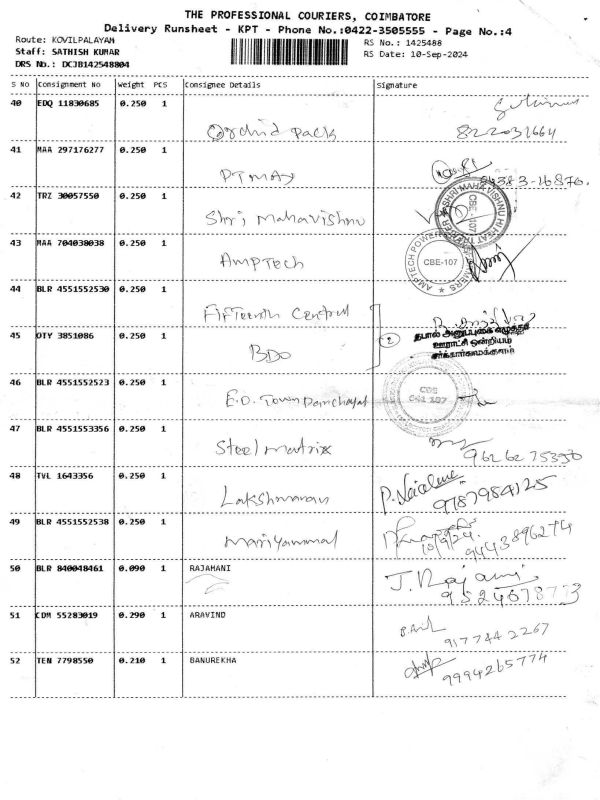 THE PROFESSIONAL COURIERS, COIMBATORE
Delivery Runsheet - KPT - Phone No.:0422-3505555 - Page No.:4
Route: KOVILPALAYAM
RS No.: 1425488
Staff: SATHISH KUMAR
RS Date: 10-Sep-2024
DRS No.: DCJB142548804
S No Consignment No Weight PCS Consignee Details Signature
40 EDQ 11830685 0.250 1 Orchid pack 822031664
41 MAA 297176277 0.250 1 PTMAX
42 TRZ 30057550 0.250 1 Shri Mahavishnu
SHRI MAHA VISHNU HI HEAT
CBE-107
43 MAA 704038038 0.250 1 AMPTech
AMPTECH POWER
CBE-107
44 BLR 4551552530 0.250 1 Fifteenth Central
45 OTY 3851086 0.250 1 BDO 2
தபால் அனுப்புகை எழுத்தர்
ஊராட்சி ஒன்றியம்
சர்க்கார்சாமக்குளம்
46 BLR 4551552523 0.250 1 E.O. Town Panchayat
47 BLR 4551553356 0.250 1 Steel matrix 9626275390
48 TVL 1643356 0.250 1 Lakshmanan 9787984125
49 BLR 4551552538 0.250 1 Mariyammal 10/9/24 9443896274
50 BLR 840048461 0.090 1 RAJAMANI J. Rajamani 9524678773
51 CDM 55283019 0.290 1 ARAVIND 9177442267
52 TEN 7798550 0.210 1 BANUREKHA 9994265774